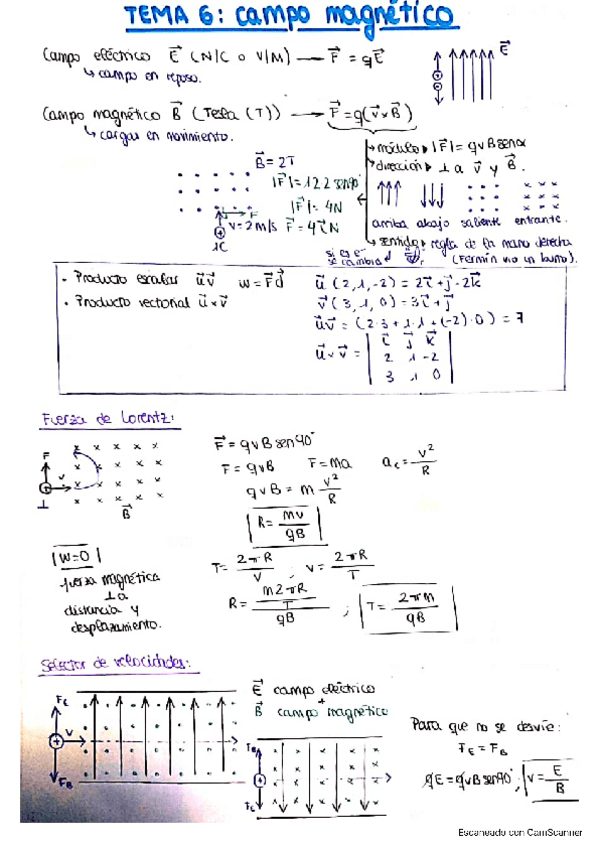 TEMA 6: campo magnético
Campo eléctrico E⃗ (N/C o V/M) — F⃗ = qE⃗
↳ campo en reposo.
E⃗
Campo magnético B⃗ (Tesla (T)) — F⃗=q(v⃗xB⃗)
↳ cargas en movimiento.
módulo |F⃗| = qvBsenα
dirección ⊥ a v⃗ y B⃗.
B⃗=2T
|F⃗|=1·2·2 sen90°
|F⃗|=4N
F⃗=4i⃗N
F
v=2m/s
1C
arriba abajo saliente entrante.
sentido regla de la mano derecha
(Fermín vio un burro).
si es e⁻
se cambia
· Producto escalar u⃗v⃗ w=F⃗d⃗
· Producto vectorial u⃗xv⃗
u⃗ (2,1,-2) = 2i⃗+j⃗-2k⃗
v⃗ (3,1,0) = 3i⃗+j⃗
u⃗v⃗ = (2·3+1·1+(-2)·0) = 7
u⃗xv⃗ = | i⃗ j⃗ k⃗ |
2 1 -2
3 1 0
Fuerza de Lorentz:
F
v
⊥
B⃗
F⃗=qvBsen90°
F=qvB F=ma a꜀=v²/R
qvB = m v²/R
R= mv/qB
|W=0|
fuerza magnética
⊥ a
distancia y
desplazamiento.
T= 2πR/v ; v= 2πR/T
R= (m2πR/T)/qB ; T= 2πm/qB
Selector de velocidades:
F_E
v
F_B
E⃗ campo eléctrico
+
B⃗ campo magnético
F_B
F_E
Para que no se desvíe:
F_E = F_B
qE=qvBsen90° ; v= E/B
Escaneado con CamScanner